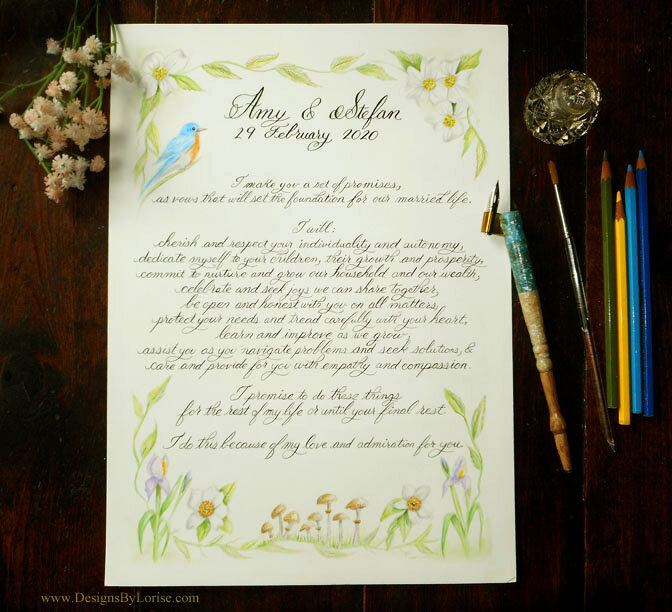 Amy & Stefan
29 February 2020
I make you a set of promises,
as vows that will set the foundation for our married life.
I will:
cherish and respect your individuality and autonomy,
dedicate myself to your children, their growth and prosperity,
commit to nurture and grow our household and our wealth,
celebrate and seek joys we can share together,
be open and honest with you on all matters,
protect your needs and tread carefully with your heart,
learn and improve as we grow,
assist you as you navigate problems and seek solutions, &
care and provide for you with empathy and compassion.
I promise to do these things
for the rest of my life or until your final rest.
I do this because of my love and admiration for you.
www.DesignsByLorise.com